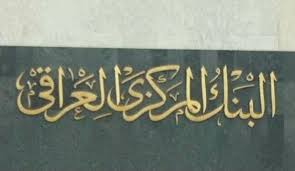 البنك المركزي العراقي